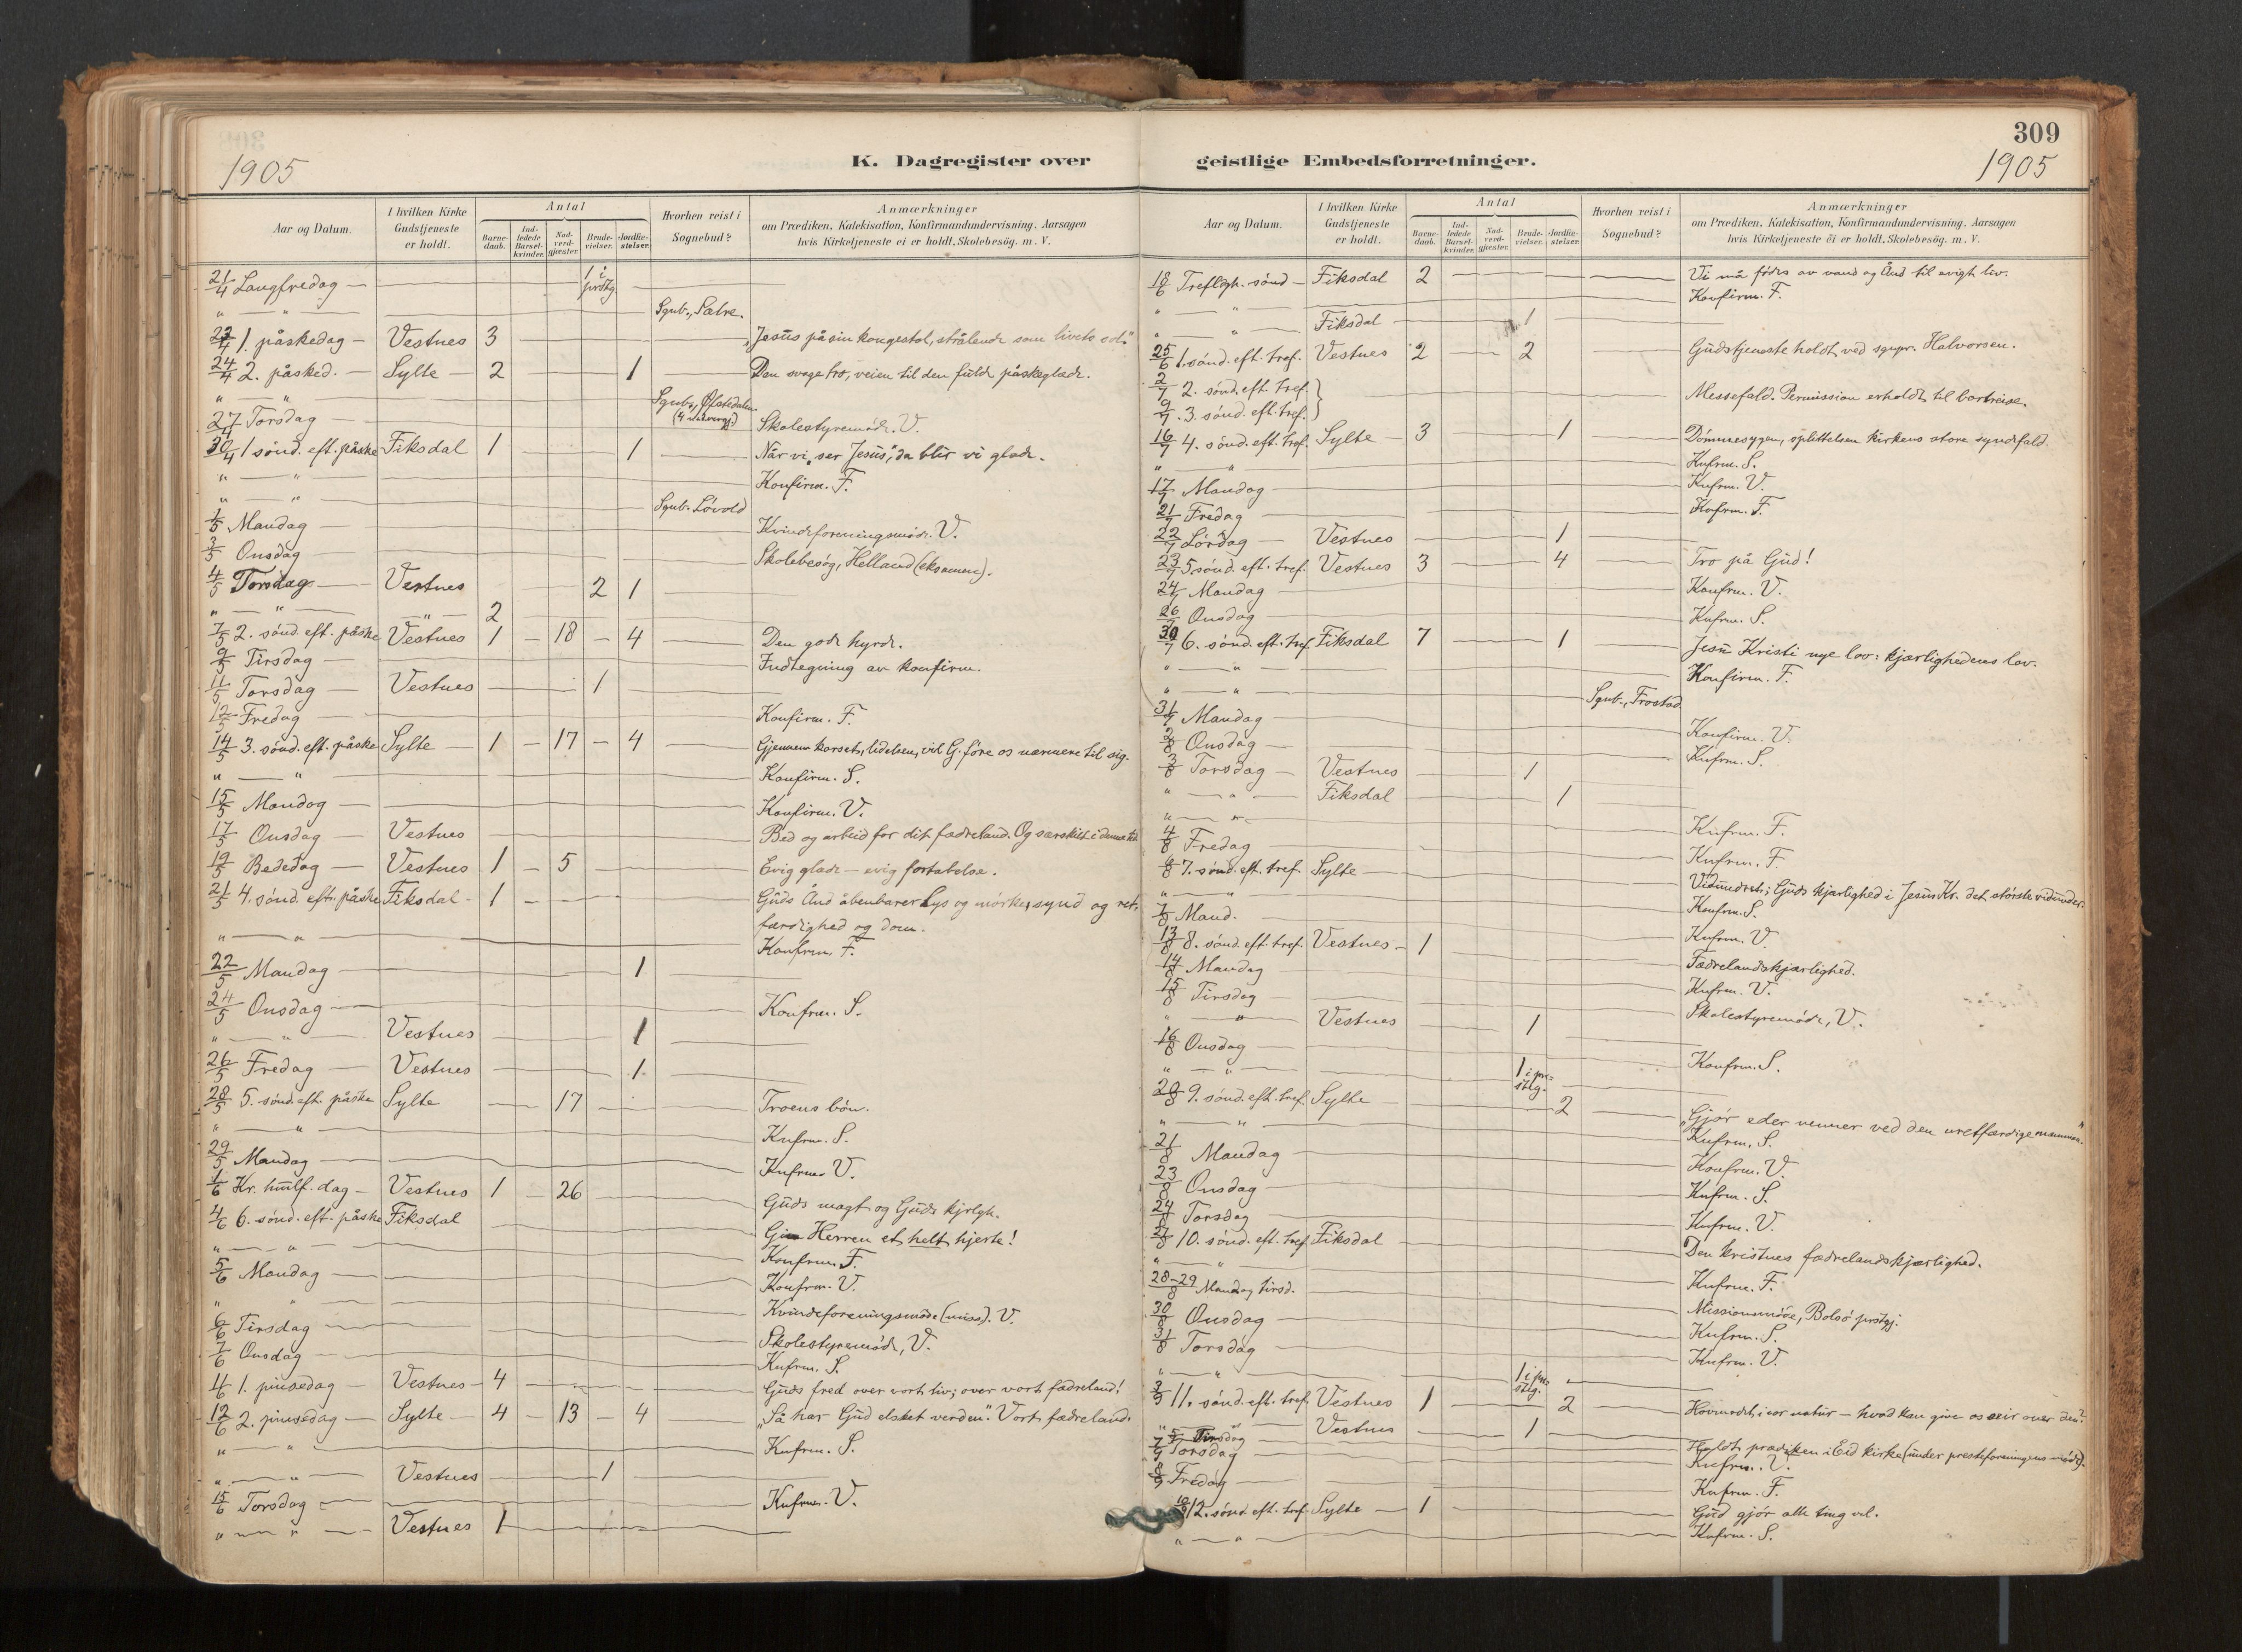 1905
K. Dagregister over
Aar og Datum.
I hvilken Kirke Gudstjeneste er holdt.
Antal
Barne-daab.
Ind-ledede Barsel-kvinder.
Nad-verd-gjæster.
Brude-vielser.
Jordfæ-stelser.
Hvorhen reist i Sognebud?
Anmærkninger
om Prædiken, Katekisation, Konfirmandundervisning. Aarsagen
hvis Kirketjeneste ei er holdt. Skolebesög. m. V.
21/4 Langfredag — 1 i prstg
" — " — Sgnb., Sætre.
23/4 1. påskedag — Vestnes 3 — "Jesus på sin kongestol, strålende som livets sol."
24/4 2. påsked. — Sylte — 2 — 1 Den svage tro, veien til den fulde påskeglæde.
" — " Sgnb., Øfstedalen (4 nadvergj.)
27/4 Torsdag — Skolestyremøde. V.
30/4 1 sønd. eft. påske Fiksdal 1 — 1 — Når vi "ser Jesus", da blir vi glade.
" — " Konfirm. F.
" — " Sgnb. Løvold
1/5 Mandag — Kvindeforeningsmøde. V.
3/5 Onsdag — Skolebesøg, Helland (eksamen).
4/5 Torsdag — Vestnes 2 1 —
" — " — " — 2
7/5 2. sønd. eft. påske Vestnes 1 — 18 — 4 — Den gode hyrde.
9/5 Tirsdag — Indtegning av konfirm.
11/5 Torsdag — Vestnes — 1
12/5 Fredag — Konfirm. F.
14/5 3. sønd. eft. påske Sylte — 1 — 17 — 4 — Gjennem korset, lidelsen, vil G. føre os nærmere til sig.
" — " Konfirm. S.
15/5 Mandag — Konfirm. V.
17/5 Onsdag — Vestnes — Bed og arbeid for dit fædreland. Og særskilt i denne tid
19/5 Bededag — Vestnes 1 — 5 — Evig glæde — evig fortabelse.
21/5 4. sønd. eft. påske Fiksdal — 1 — Guds Ånd åbenbarer Lys og mørke, synd og ret-
færdighed og dom.
" — " Konfrm. F.
22/5 Mandag — 1
24/5 Onsdag — Konfrm. S.
" — " — Vestnes — 1 —
26/5 Fredag — Vestnes — 1 —
28/5 5. sønd. eft. påske Sylte — 17 — Troens bøn.
" — " Knfrm. S.
29/5 Mandag — Knfrm. V.
1/6 Kr. himlf. dag — Vestnes 1 — 26 — Guds magt og Guds kjrlgh.
4/6 6. sønd. eft. påske Fiksdal — Giv Herren et helt hjerte!
" — " Konfrm. F.
5/6 Mandag — Konfrm. V.
" " — Kvindeforeningsmøde (miss). V.
6/6 Tirsdag — Skolestyremøde, V.
7/6 Onsdag — Knfrm. S.
11/6 1. pinsedag — Vestnes — 4 — Guds fred over vort liv; over vort fædreland!
12/6 2. pinsedag — Sylte — 4 — 13 — 4 "Så har Gud elsket verden". Vort fædreland.
" — " Knfrm. S.
" — " — Vestnes — 1
15/6 Torsdag — Knfrm. V.
" — " — Vestnes 1 —
309
geistlige Embedsforretninger.
1905
Aar og Datum.
I hvilken Kirke Gudstjeneste er holdt.
Antal
Barne-daab.
Ind-ledede Barsel-kvinder.
Nad-verd-gjæster.
Brude-vielser.
Jordfæ-stelser.
Hvorhen reist i Sognebud?
Anmærkninger
om Prædiken, Katekisation, Konfirmandundervisning. Aarsagen
hvis Kirketjeneste ei er holdt. Skolebesög. m. V.
18/6 Trefligh. sønd — Fiksdal 2 — Vi må fødes av vand og Ånd til evigt liv.
" — " Konfirm. F.
" — " — Fiksdal — 1 —
25/6 1. sønd. eft. tref. Vestnes 2 — 2 — Gudstjeneste holdt ved sgnpr. Halvorsen.
2/7 2. sønd. eft. tref. }
9/7 3. sønd. eft. tref. } Messefald. Permission erholdt til bortreise.
16/7 4. sønd. eft. tref. Sylte — 3 — 1 — Dømmesygen, splittelsen kirkens store syndefald.
" — " Knfrm. S.
17/7 Mandag — Knfrm. V.
21/7 Fredag — Knfrm. F.
22/7 Lørdag — Vestnes — 1
23/7 5 sønd. eft. tref. Vestnes 3 — 4 — Tro på Gud!
24/7 Mandag — Konfrm. V.
26/7 Onsdag — Knfrm. S.
30/7 6. sønd. eft. tref. Fiksdal 7 — 1 — Jesu Kristi nye lov: kjærlighedens lov.
" — " Konfirm. F.
" — " Sgnb., Frostad
31/7 Mandag — Konfirm. V.
2/8 Onsdag — Knfrm. S.
3/8 Torsdag — Vestnes — 1
" — " — Fiksdal — 1
" — " — Knfrm. F.
4/8 Fredag — Knfrm. F.
6/8 7. sønd. eft. tref. Sylte — Vidundret; Guds kjærlighed i Jesus Kr. det største vidunder.
" — " Konfrm. S.
7/8 Mand. — Knfrm. V.
13/8 8. sønd. eft. tref. Vestnes — 1 — Fædrelandskjærlighed.
14/8 Mandag — Knfrm. V.
15/8 Tirsdag — Skolestyremøde, V.
" — " Vestnes — 1
16/8 Onsdag — Konfrm. S.
" — " — 1 i pre-steg.
20/8 9. sønd. eft. tref. Sylte — 2 — "Gjør eder venner ved den uretfærdige mammon."
" — " Knfrm. S.
21/8 Mandag — Konfrm. V.
23/8 Onsdag — Knfrm. S.
24/8 Torsdag — Knfrm. V.
27/8 10. sønd. eft. tref. Fiksdal — Den kristnes fædrelandskjærlighed.
" — " Knfrm. F.
28-29/8 Mandag tirsd. Missionsmøde, Bolsø prstgj.
30/8 Onsdag — Knfrm. S.
31/8 Torsdag — Knfrm. V.
" — " 1 i pre-steg.
3/9 11. sønd. eft. tref. Vestnes 1 — 2 — Hovmodet i vor natur — hvad kan give os seir over den?
" 5/9 Tirsdag — Vestnes — 1
7/9 Torsdag — Holdt prædiken i Eid kirke (under presteforeningens møde).
Knfrm. V.
8/9 Fredag — Knfrm. F.
10/9 12. sønd. eft. tref. Sylte — 1 — Gud gjør alle ting vel.
" — " — Knfrm. S.